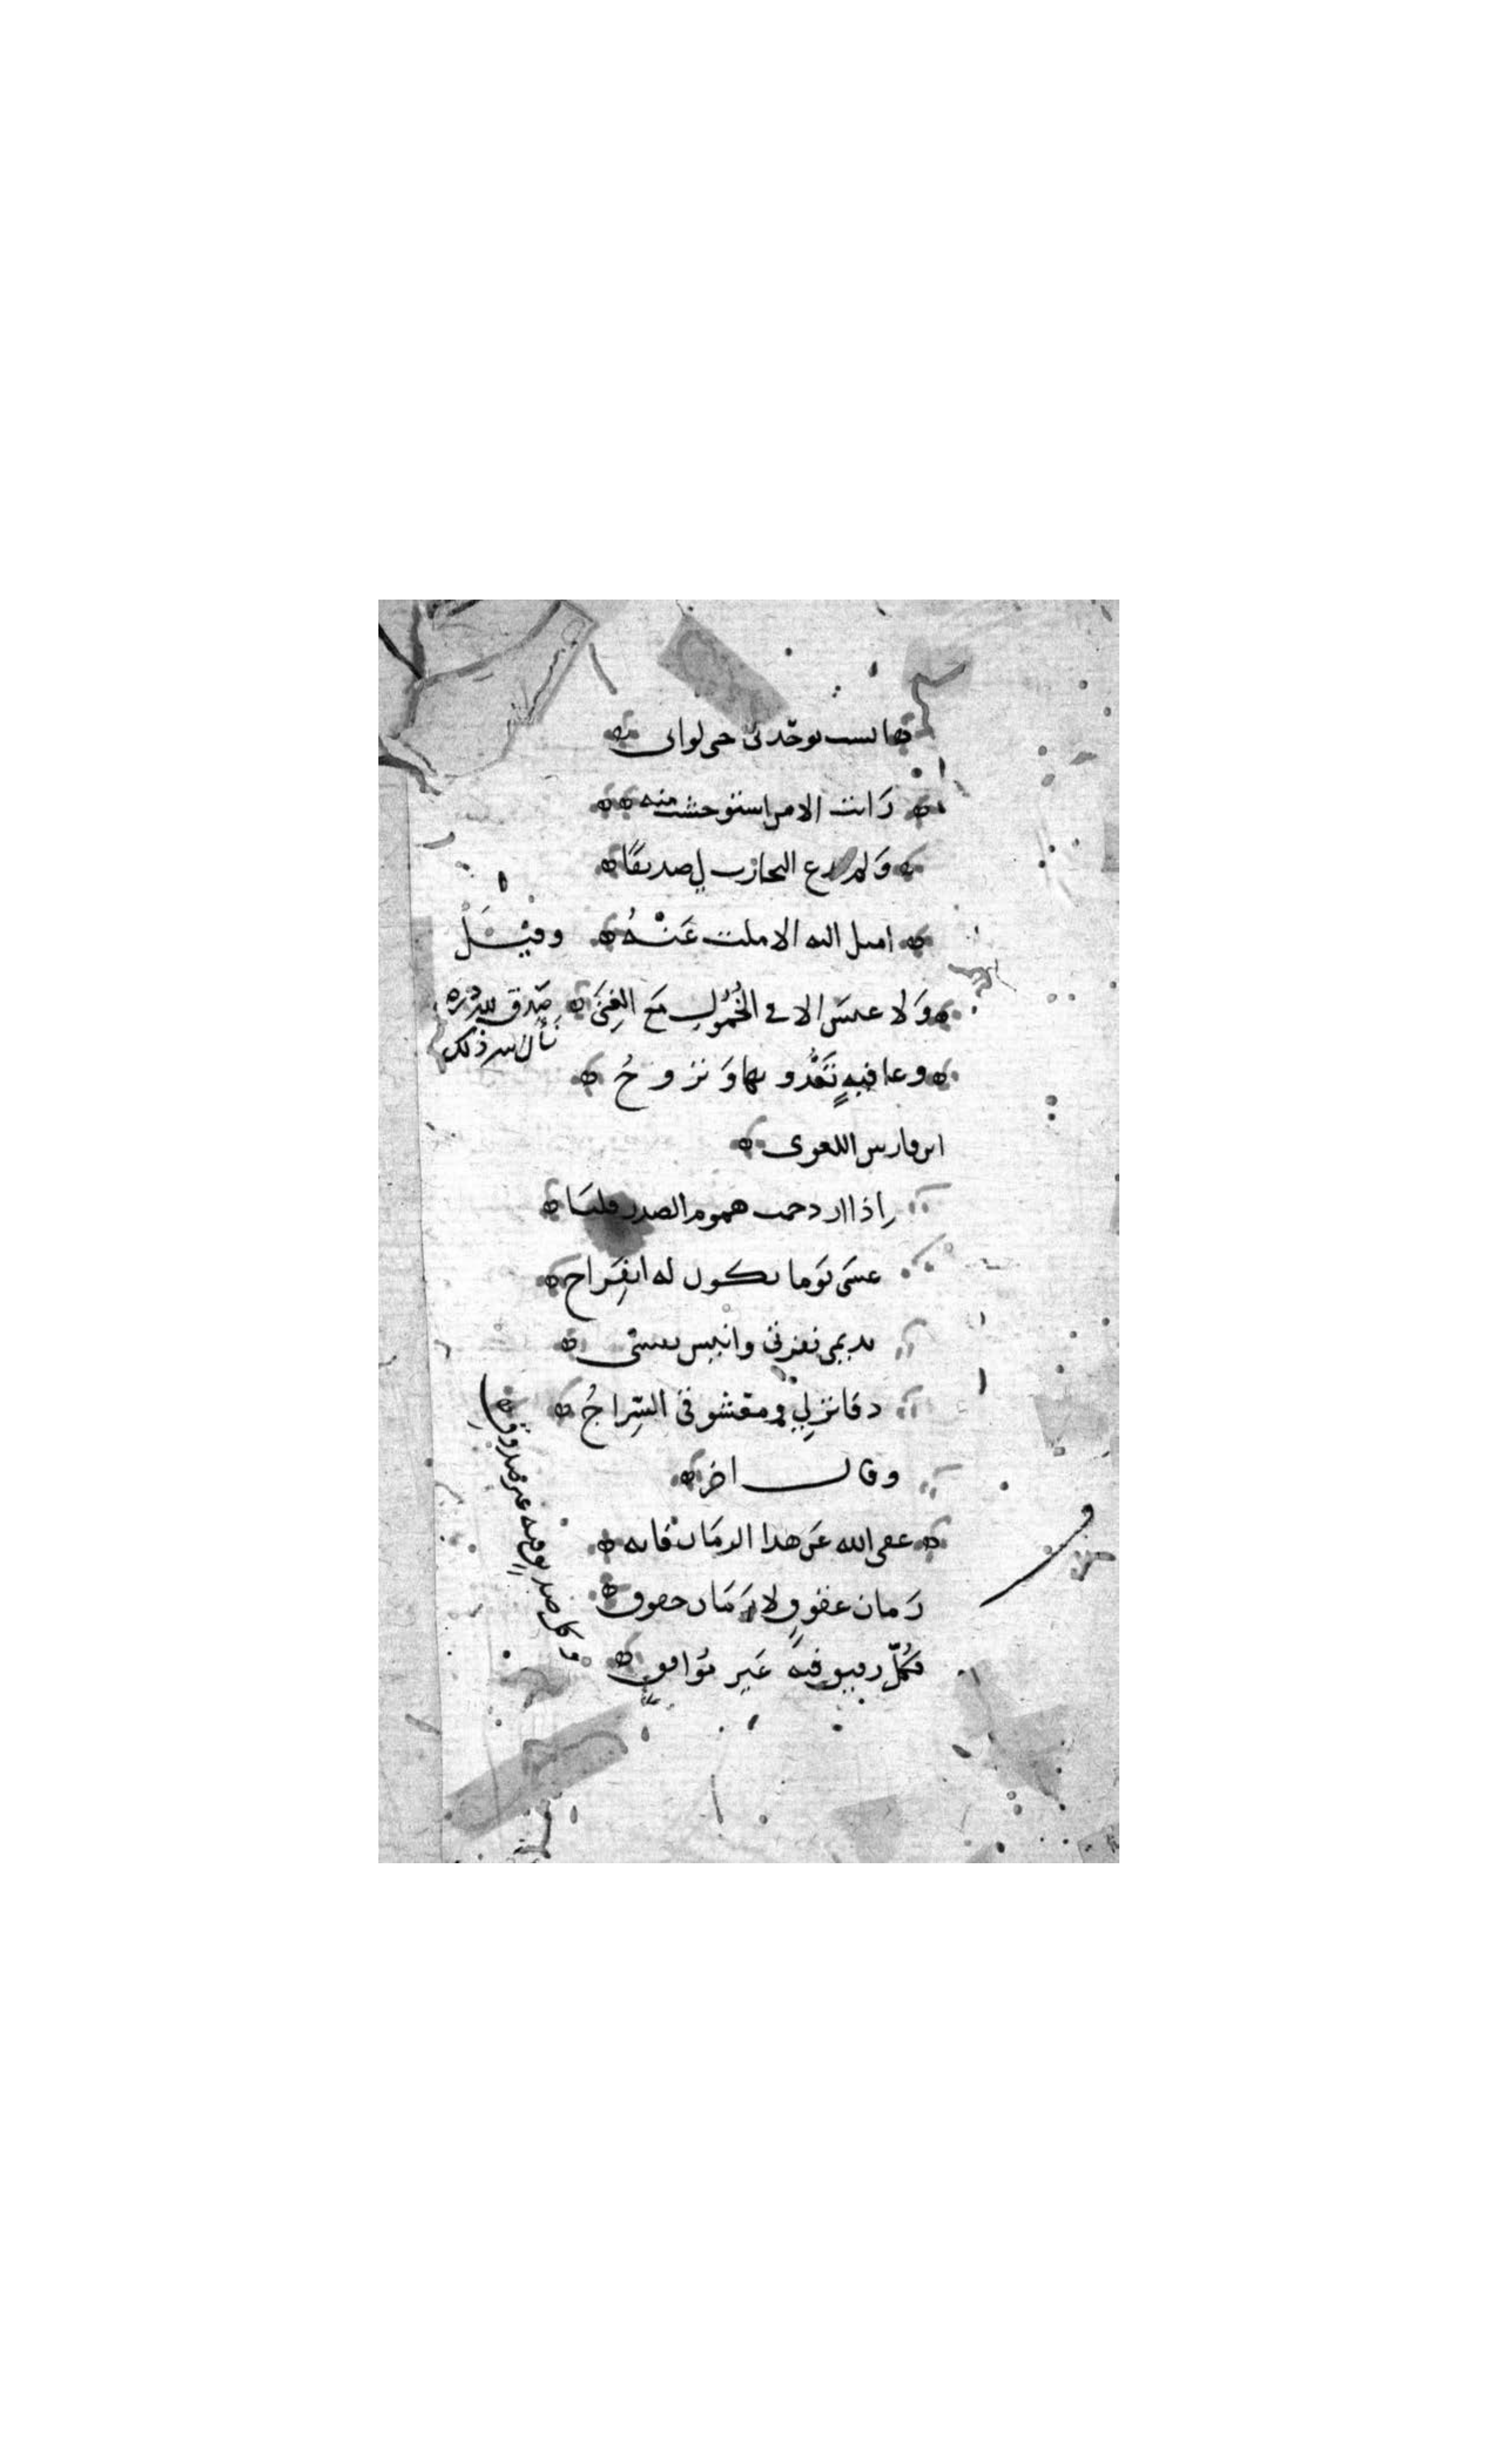 انست بوحدتي حتى لو اني
رايت الانس لاستوحشت منه
ولم تدع التجارب لي صديقا
اميل اليه الا ملت عنه وقيل
ولا عيش الا في الخمول مع الغنى صدق لله دره
وعافية تغدو بها وتروح
ابن فارس اللغوي
اذا ازدحمت هموم الصدر قلنا
عسى يوما يكون له انفراج
نديمي هرتي وانيس نفسي
دفاتر لي ومعشوقي السراج
وقال اخر
عفى الله عن هذا الزمان فانه
زمان عقوق لا زمان حقوق
فكل رفيق فيه غير موافق
وكل صديق فيه غير صدوق